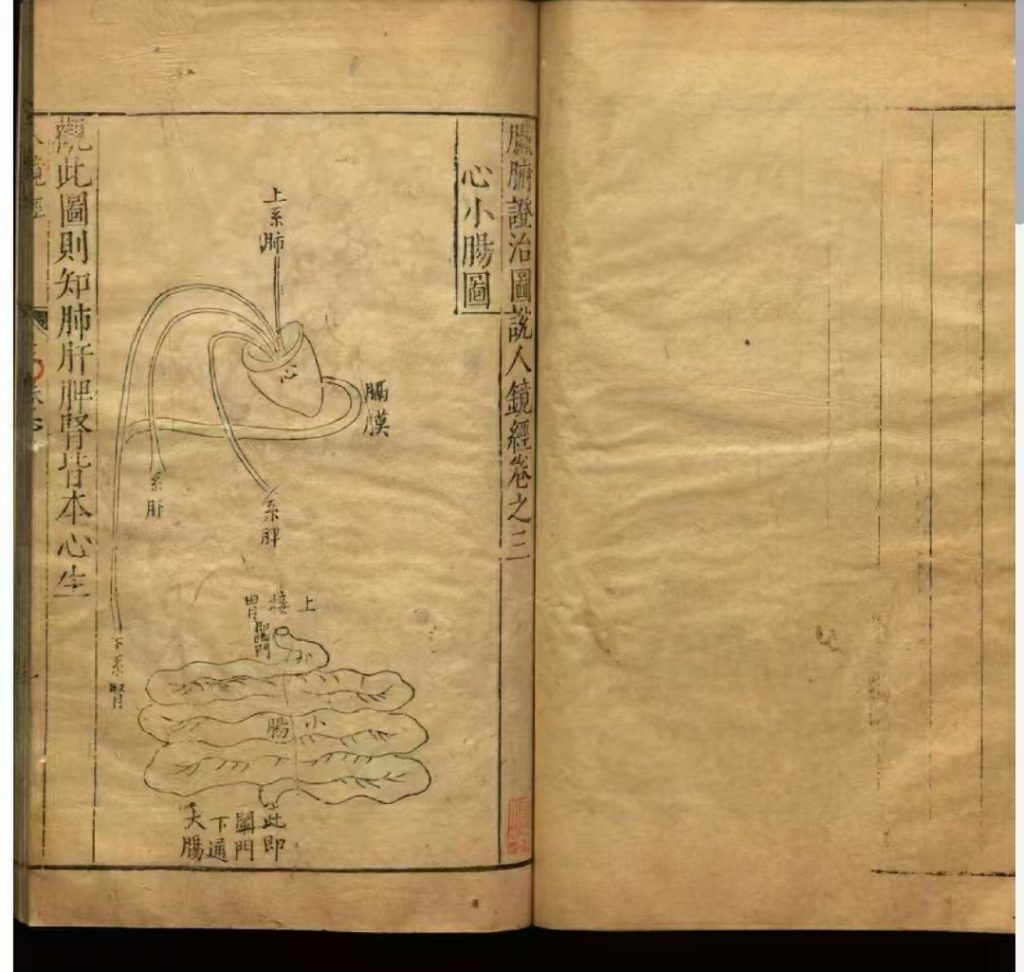 臟腑證治圖說人鏡經卷之三
心小腸圖
上系肺
心
膈膜
系脾
系肝
下系腎
上接胃
闌門
小腸
此即闌門下通大腸
觀此圖則知肺肝脾腎皆本心生
人鏡經